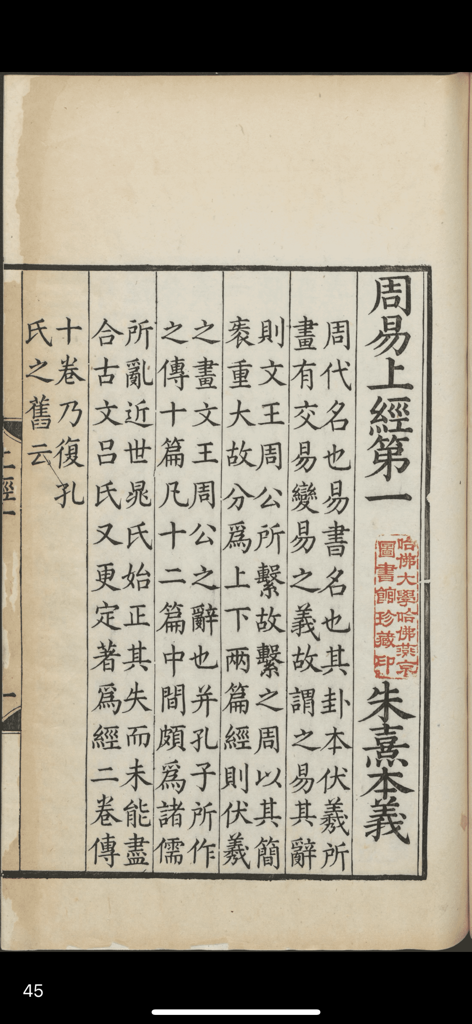 周易上經第一
哈佛大學哈佛燕京
圖書館珍藏印
朱熹本義
周代名也易書名也其卦本伏羲所
畫有交易變易之義故謂之易其辭
則文王周公所繫故繫之周以其簡
袠重大故分爲上下兩篇經則伏羲
之畫文王周公之辭也并孔子所作
之傳十篇凡十二篇中間頗爲諸儒
所亂近世晁氏始正其失而未能盡
合古文吕氏又更定著爲經二卷傳
十卷乃復孔
氏之舊云
45